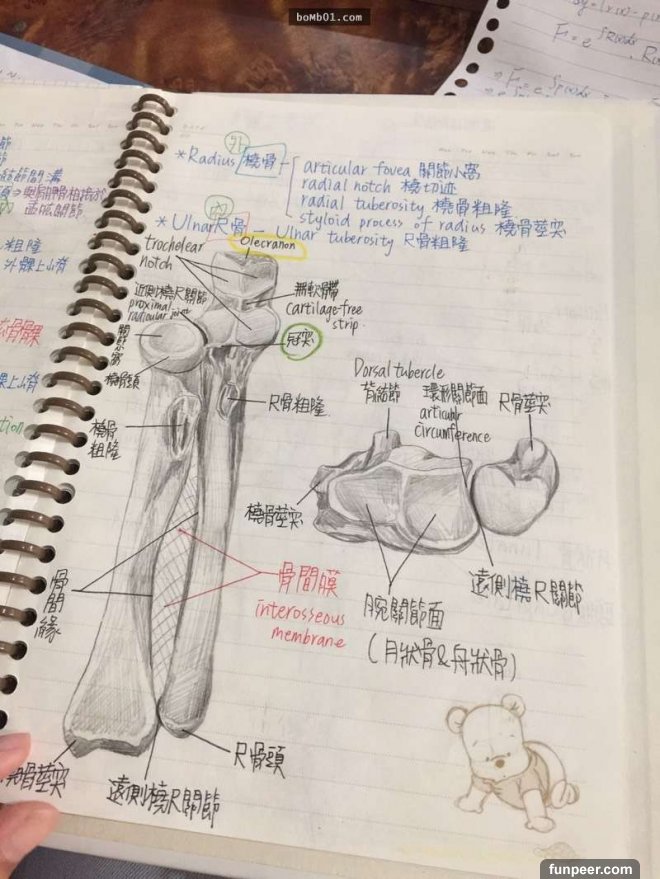 bomb01.com
外
*Radius 橈骨
articular fovea 關節小窩
radial notch 橈切迹
radial tuberosity 橈骨粗隆
styloid process of radius 橈骨莖突
內
*Ulnar 尺骨 — Ulnar tuberosity 尺骨粗隆
Olecranon
trochlear
notch
近側橈尺關節
proximal
radioulnar joint
無軟骨帶
cartilage-free
strip.
冠突
橈骨頭
尺骨粗隆
橈骨
粗隆
Dorsal tubercle
背結節
環形關節面
articular
circumference
尺骨莖突
橈骨莖突
遠側橈尺關節
腕關節面
(月狀骨&舟狀骨)
骨間膜
interosseous
membrane
骨間緣
尺骨頭
橈骨莖突
遠側橈尺關節
節
節間溝
孟肱關節
粗隆
外髁上山脊
髁上山脊
funpeer.com